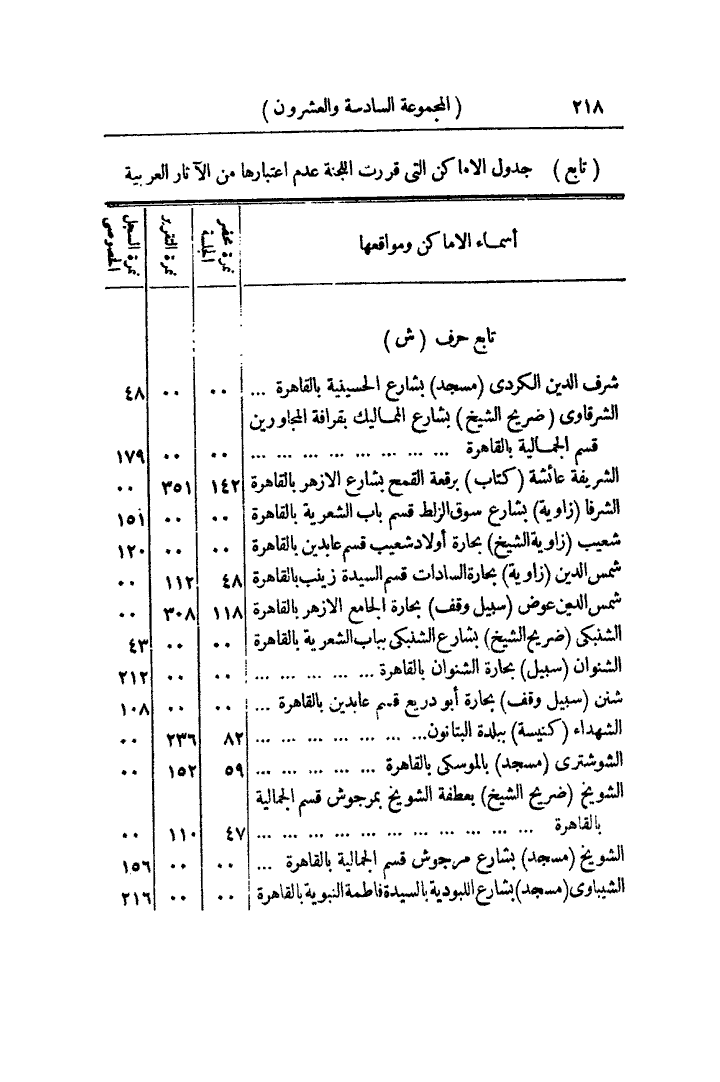 ٢١٨ ( المجموعة السادسة والعشرون )
( تابع ) جدول الاماكن التى قررت اللجنة عدم اعتبارها من الآثار العربية
أسماء الاماكن ومواقعها نمرة محضر الجلسة نمرة التقرير نمرة السجل الخصوصى
تابع حرف ( ش )
شرف الدين الكردى (مسجد) بشارع الحسينية بالقاهرة ... ٠٠ ٠٠ ٤٨
الشرقاوى (ضريح الشيخ) بشارع المماليك بقرافة المجاورين
قسم الجمالية بالقاهرة ... ... ... ... ... ... ... ... ٠٠ ٠٠ ١٧٩
الشريفة عائشة (كتاب) برقعة القمح بشارع الازهر بالقاهرة ١٤٢ ٣٥١ ٠٠
الشرفا (زاوية) بشارع سوق الزلط قسم باب الشعرية بالقاهرة ٠٠ ٠٠ ١٥١
شعيب (زاوية الشيخ) بحارة أولاد شعيب قسم عابدين بالقاهرة ٠٠ ٠٠ ١٢٠
شمس الدين (زاوية) بحارة السادات قسم السيدة زينب بالقاهرة ٤٨ ١١٢ ٠٠
شمس الدين عوض (سبيل وقف) بحارة الجامع الازهر بالقاهرة ١١٨ ٣٠٨ ٠٠
الشنبكى (ضريح الشيخ) بشارع الشنبكى بباب الشعرية بالقاهرة ٠٠ ٠٠ ٤٣
الشنوان (سبيل) بحارة الشنوان بالقاهرة ... ... ... ... ... ٠٠ ٠٠ ٢١٢
شنن (سبيل وقف) بحارة أبو دريع قسم عابدين بالقاهرة ... ٠٠ ٠٠ ١٠٨
الشهداء (كنيسة) ببلدة البتانون... ... ... ... ... ... ... ٨٢ ٢٣٦ ٠٠
الشوشترى (مسجد) بالموسكى بالقاهرة ... ... ... ... ... ٥٩ ١٥٢ ٠٠
الشويخ (ضريح الشيخ) بعطفة الشويخ بمرجوش قسم الجمالية
بالقاهرة ... ... ... ... ... ... ... ... ... ... ... ٤٧ ١١٠ ٠٠
الشويخ (مسجد) بشارع مرجوش قسم الجمالية بالقاهرة ... ٠٠ ٠٠ ١٥٦
الشيباوى (مسجد) بشارع اللبودية بالسيدة فاطمة النبوية بالقاهرة ٠٠ ٠٠ ٢١٦